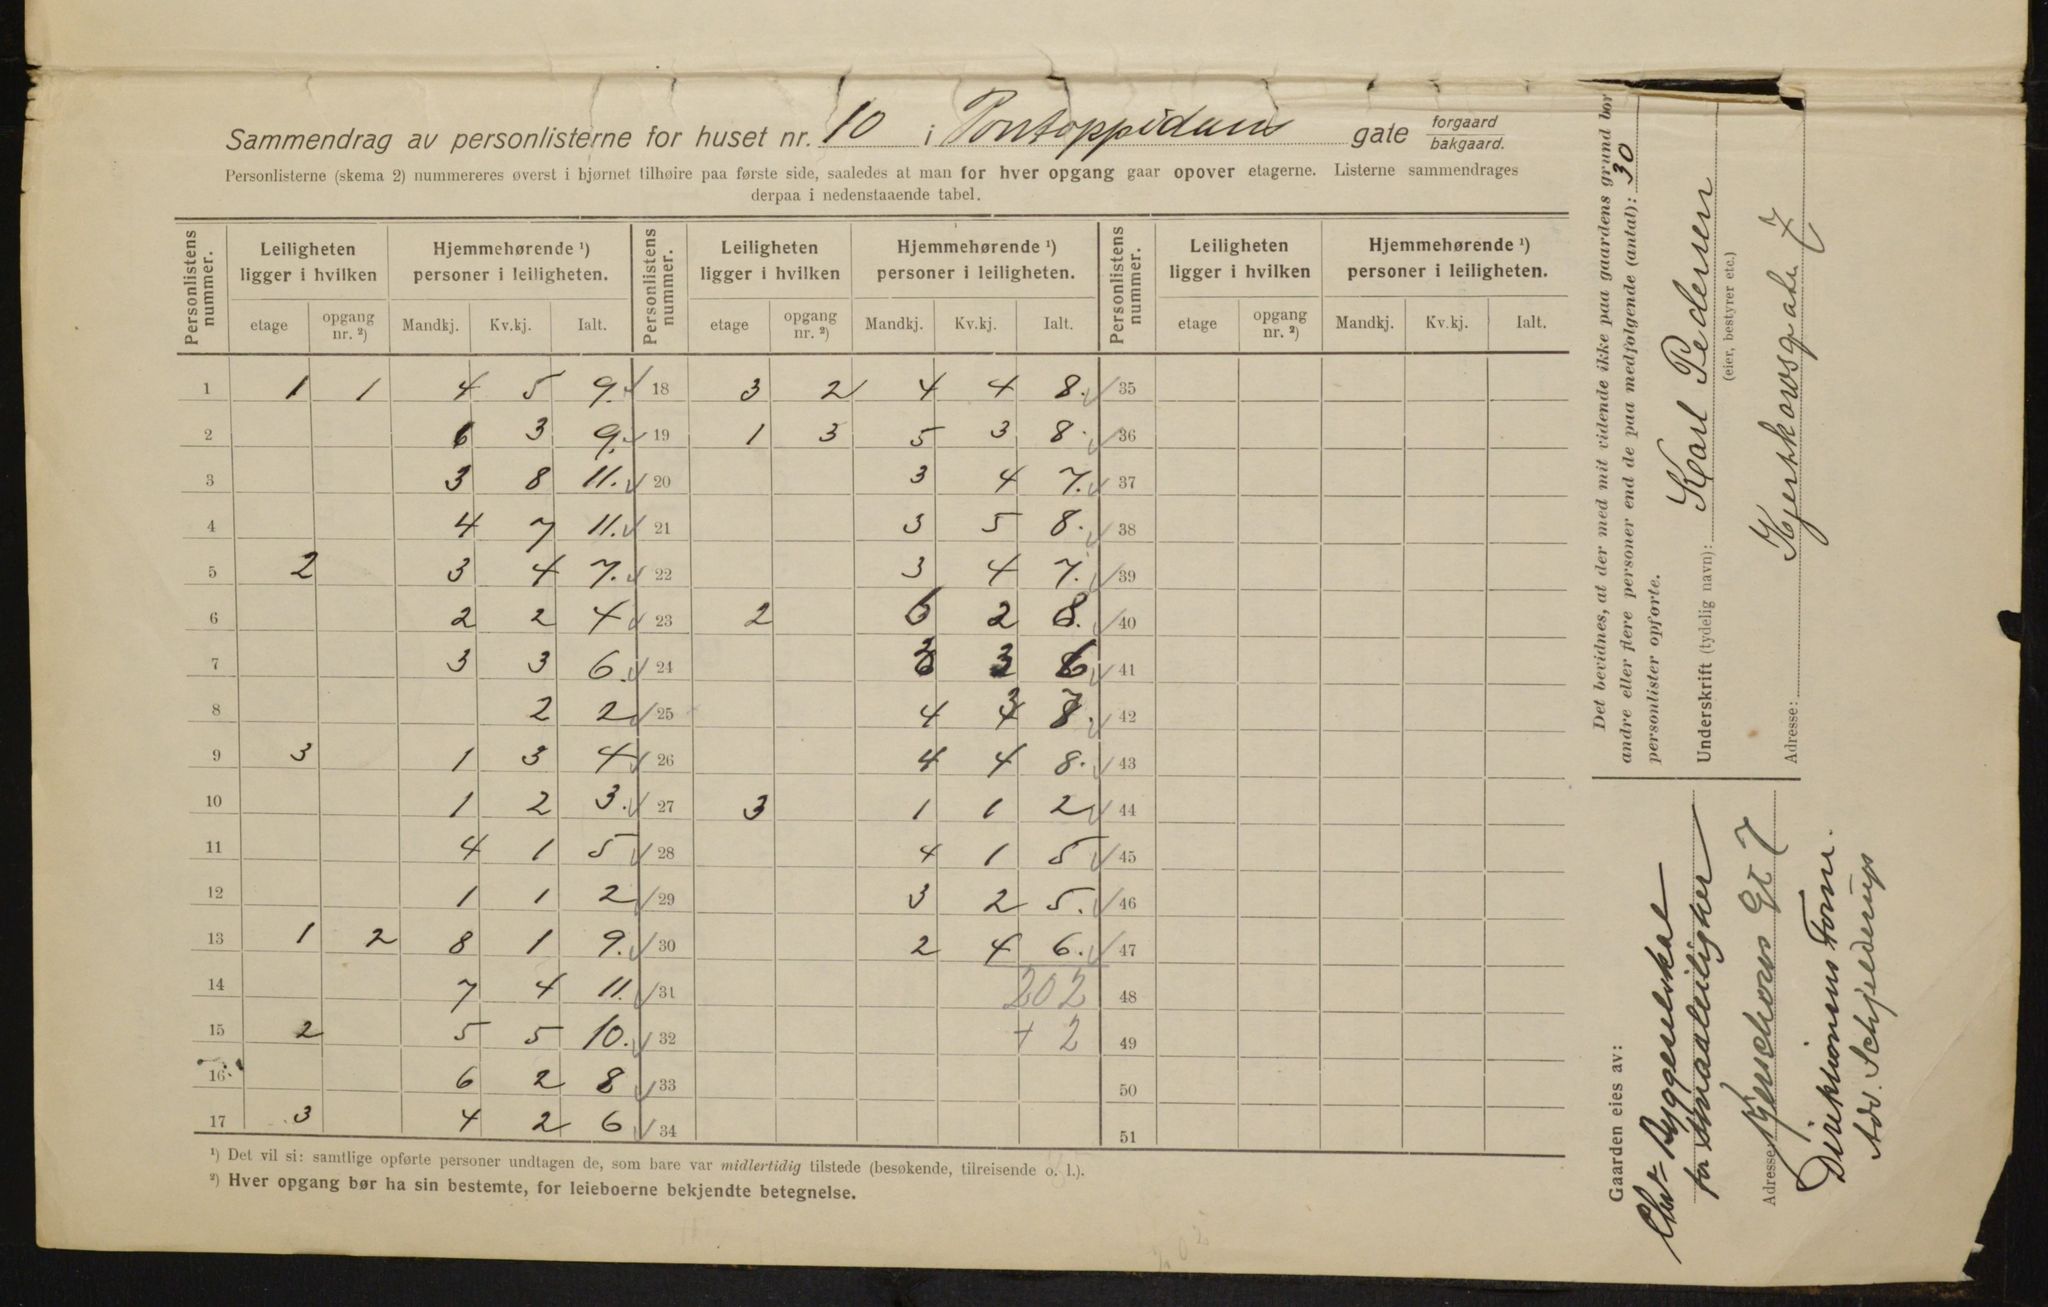 Sammendrag av personlisterne for huset nr. 10 i Pontoppidans gate forgaard bakgaard.
Personlisterne (skema 2) nummereres øverst i hjørnet tilhøire paa første side, saaledes at man for hver opgang gaar opover etagerne. Listerne sammendrages
derpaa i nedenstaaende tabel.
Personlistens nummer. Leiligheten ligger i hvilken Hjemmehørende ¹) personer i leiligheten. Personlistens nummer. Leiligheten ligger i hvilken Hjemmehørende ¹) personer i leiligheten. Personlistens nummer. Leiligheten ligger i hvilken Hjemmehørende ¹) personer i leiligheten.
etage opgang nr. ²) Mandkj. Kv.kj. Ialt. etage opgang nr. ²) Mandkj. Kv.kj. Ialt. etage opgang nr. ²) Mandkj. Kv.kj. Ialt.
1 1 1 4 5 9. 18 3 2 4 4 8. 35
2 6 3 9. 19 1 3 5 3 8. 36
3 3 8 11. 20 3 4 7. 37
4 4 7 11. 21 3 5 8. 38
5 2 3 4 7. 22 3 4 7. 39
6 2 2 4 23 2 6 2 8. 40
7 3 3 6. 24 3 3 6 41
8 2 2 25 4 3 7. 42
9 3 1 3 4 26 4 4 8. 43
10 1 2 3. 27 3 1 1 2 44
11 4 1 5 28 4 1 5 45
12 1 1 2 29 3 2 5. 46
13 1 2 8 1 9. 30 2 4 6. 47
14 7 4 11. 31 202 48
15 2 5 5 10. 32 + 2 49
16 6 2 8 33 50
17 3 4 2 6 34 51
¹) Det vil si: samtlige opførte personer undtagen de, som bare var midlertidig tilstede (besøkende, tilreisende o. l.).
²) Hver opgang bør ha sin bestemte, for leieboerne bekjendte betegnelse.
Det bevidnes, at der med mit vidende ikke paa gaardens grund bor
andre eller flere personer end de paa medfølgende (antal): 30
personlister opførte.
Underskrift (tydelig navn): Karl Pedersen
(eier, bestyrer etc.)
Adresse: Kjerskowsgate 7
Gaarden eies av:
Chra Byggeselskab
for Smaaleiligheter
Adresse Kjerschows gt 7
Direktionens Form.
Adv. Schjelderup